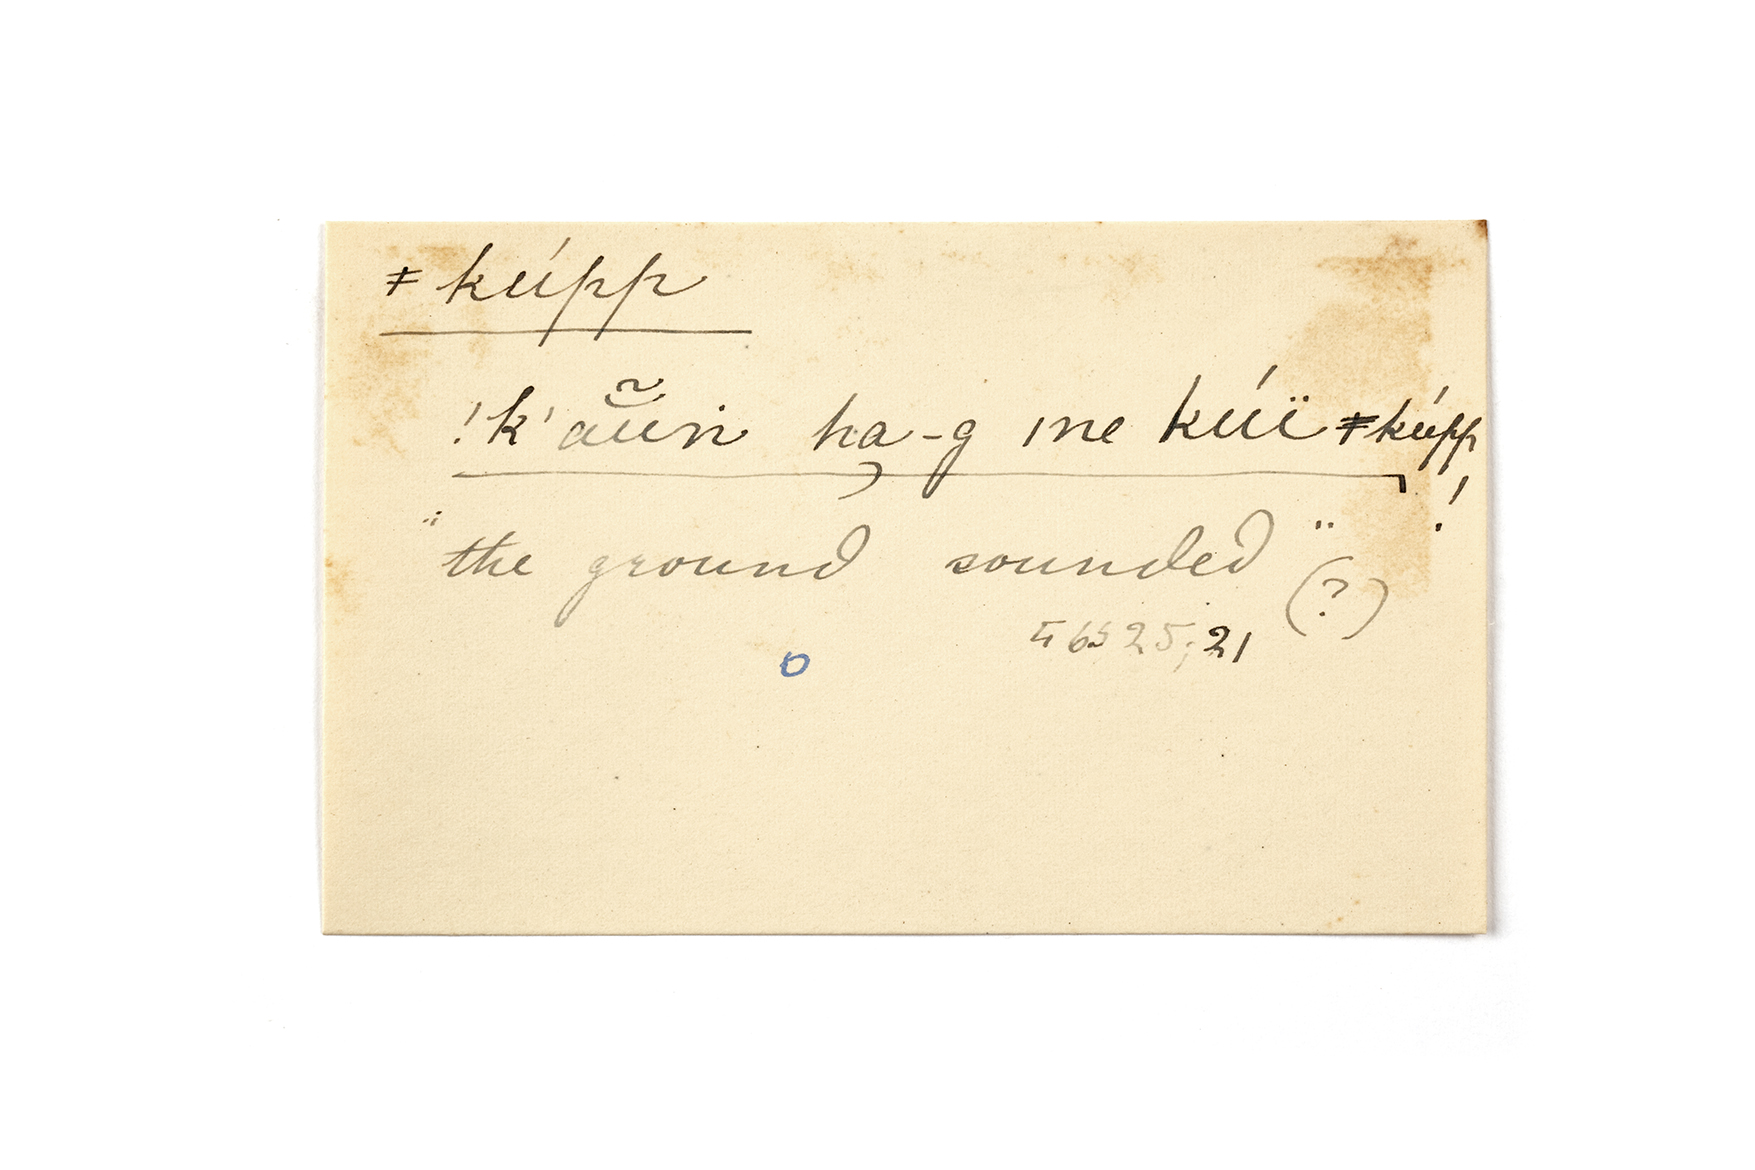 ǂ kúpp
!k'aũ̆ṅ ha-g ıne kúï ǂkúpp!
"the ground sounded" (?)
25; 21
o